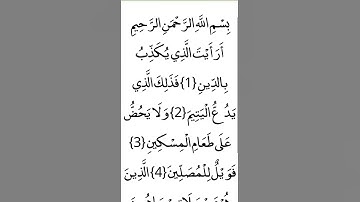 بِسْمِ اللَّهِ الرَّحْمَنِ الرَّحِيمِ
أَرَأَيْتَ الَّذِي يُكَذِّبُ
بِالدِّينِ {1} فَذَلِكَ الَّذِي
يَدُعُّ الْيَتِيمَ {2} وَلَا يَحُضُّ
عَلَى طَعَامِ الْمِسْكِينِ {3}
فَوَيْلٌ لِلْمُصَلِّينَ {4} الَّذِينَ